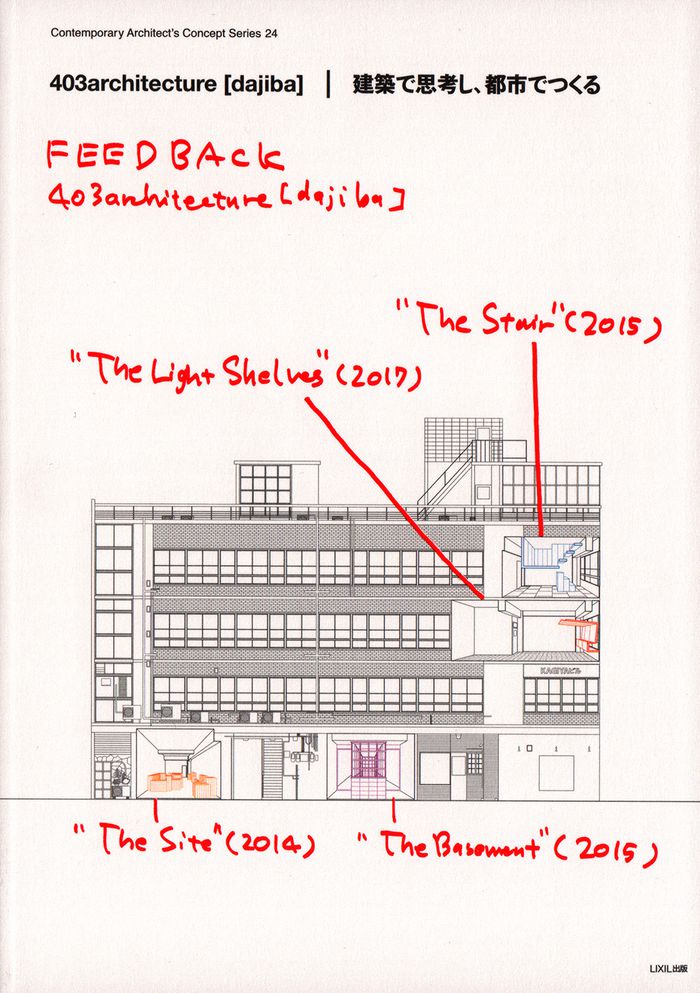 Contemporary Architect's Concept Series 24
403architecture [dajiba] | 建築で思考し、都市でつくる
FEEDBACK
403architecture [dajiba]
"The Stair" (2015)
"The Light Shelves" (2017)
KAGIYAビル
"The Site" (2014)
"The Basement" (2015)
LIXIL出版